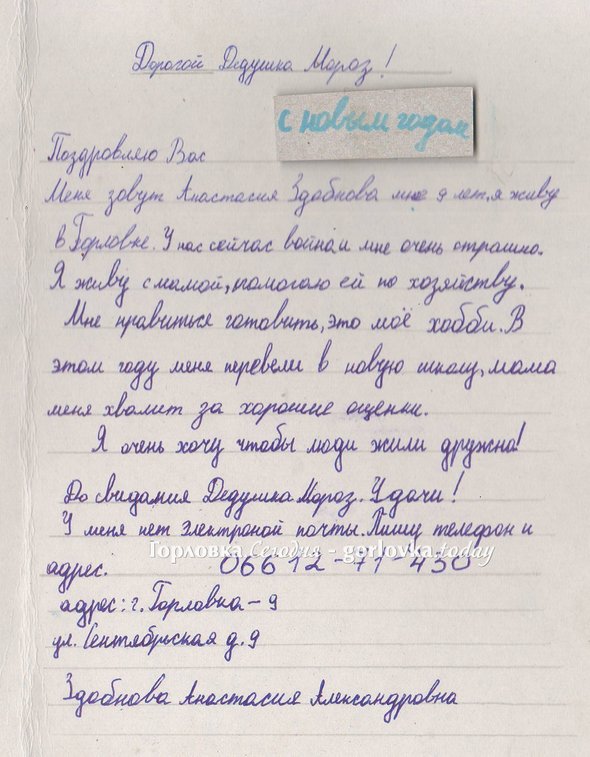 Дорогой Дедушка Мороз!
С новым годом
Поздровляю Вас
Меня зовут Анастасия Здобнова мне 9 лет, я живу
в Горловке. У нас сейчас война и мне очень страшно.
Я живу с мамой, помогаю ей по хозяйству.
Мне нравиться готовить, это моё хобби. В
этом году меня перевели в новую школу, мама
меня хвалит за хорошие оценки.
Я очень хочу чтобы люди жили дружно!
До свидания Дедушка Мороз. Удачи!
У меня нет электроной почты. Пишу телефон и
Горловка Сегодня - gorlovka.today
адрес. 06612-71-430
адрес: г. Горловка-9
ул. Сентябрьская д. 9
Здобнова Анастасия Александровна